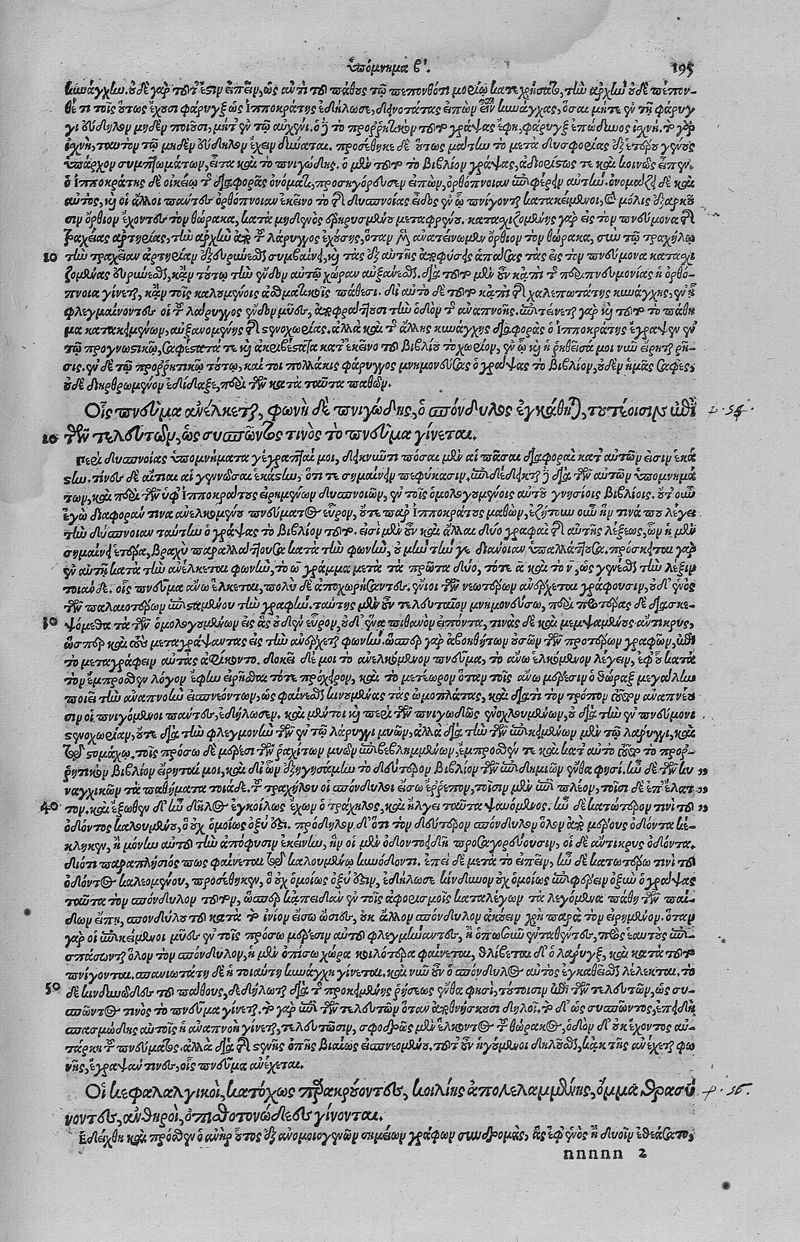 Ὑπόμνημα β΄. 195
κυνάγχην. οὐδὲ γὰρ τοῦτ' ἔστιν εἰπεῖν, ὡς αὐτὴ τοῦ πάθους τῷ πεπονθότι μορίῳ κατεχρήσατο, τὴν ἀρχὴν οὐδὲ πεπον-
θέ τι τοῖς οὕτως ἔχουσι φάρυγξ ὡς ἱπποκράτης ἐδήλωσε, δεινοτάτας εἰπὼν εἶναι κυνάγχας, ὅσαι μήτε ἐν τῇ φάρυγ-
γι εὔδηλον μηδὲν ποιοῦσι, μήτ' ἐν τῷ αὐχένι. ὁ δὲ τὸ προρρητικὸν τοῦτο γράψας ἔφη, φάρυγξ ἐπώδυνος ἰσχνή. τὸ γὰρ
ἰσχνή, ταυτὸν τῷ μηδὲν εὔδηλον ἔχειν δύναται. προσέθηκε δὲ οὕτως μάτην τὸ μετὰ δυσφορίας ἑτέρου γένους
ὑπάρχον συμπτωμάτων, εἶτα καὶ τὸ πνιγώδης. ὁ μὲν τοῦτο τὸ βιβλίον γράψας, ἀδιορίστως τε καὶ κοινῶς εἶπεν.
ὁ ἱπποκράτης δὲ οἰκείῳ τῆς διαφορᾶς ὀνόματι, προσηγόρευσεν εἰπών, ὀρθόπνοιαν ἐπιφέρειν αὐτήν. ὀνομάζει δὲ καὶ
αὐτὸς, καὶ οἱ ἄλλοι πάντες ὀρθόπνοιαν ἐκεῖνο τὸ τῆς δυσπνοίας εἶδος ἐν ᾧ πνίγονται κατακείμενοι, καὶ μόλις ἐξαρκοῦ-
σιν ὄρθιον ἔχοντες τὸν θώρακα, κατὰ μηδενὸς ἐρηρεισμένους μεταφρένου. καταχιζομένης γὰρ εἰς τὸν πνεύμονα τῆς
τραχείας ἀρτηρίας, τὴν ἀρχὴν ἀπὸ τοῦ λάρυγγος ἐχούσης, ὅταν ἀνατείνωμεν ὄρθιον τὸν θώρακα, σὺν τῷ τραχήλῳ
10 τὴν τραχεῖαν ἀρτηρίαν εὐρύνεσθαι συμβαίνει, καὶ τὰς ἐξ αὐτῆς ἀποφύσεις ἁπάσας τὰς εἰς τὸν πνεύμονα κατασχι-
ζομένας εὐρύνεσθαι, κἀν τούτῳ τὴν ἔνδον αὐτῷ χώραν αὐξάνεσθαι. διὰ τοῦτο μὲν οὖν κἀπὶ τῆς περιπνευμονίας ἡ ὀρθό-
πνοια γίνεται, κἀν τοῖς καλουμένοις ἀσθματικοῖς πάθεσι. δι' αὐτὸ δὲ τοῦτο κἀπὶ τῆς χαλεπωτάτης κυνάγχης, ἐν ᾗ
φλεγμαίνοντες οἱ τοῦ λάρυγγος ἔνδον μύες, ἀποφράττουσι τὴν ὁδὸν τῆς ἀναπνοῆς. ἐπιτείνεται γὰρ καὶ τοῦτο τὸ πάθη-
μα κατακειμένων, αὐξανομένης τῆς στενοχωρίας. ἀλλὰ καὶ τὰς ἄλλας κυνάγχης διαφορὰς ὁ ἱπποκράτης ἔγραψεν ἐν
τῷ προγνωστικῷ, σαφέστατά τε καὶ ἀκριβέστατα κατ' ἐκεῖνο τοῦ βιβλίου τὸ χωρίον, ἐν ᾧ καὶ ἡ ῥηθεῖσά μοι νῦν εἴρηται ῥῆ-
σις. ἐν δὲ τῷ προρρητικῷ τούτῳ, καίτοι πολλάκις φάρυγγος μνημονεύσας ὁ γράψας τὸ βιβλίον, οὐδὲν ἡμᾶς σαφὲς,
οὐδὲ διηρθρωμένον ἐδίδαξε, περὶ τῶν κατὰ ταῦτα παθῶν.
Οἷς πνεῦμα ἀνέλκεται, φωνὴ δὲ πνιγώδης, ὁ σπόνδυλος ἐγκάθηται, τουτέοισιν ἐπὶ
20 τῶν τελευτῶν, ὡς συσπῶντός τινος τὸ πνεῦμα γίνεται.
Περὶ δυσπνοίας ὑπομνήματα γέγραπταί μοι, δεικνῦντι πόσαι μὲν αἱ πᾶσαι διαφοραὶ κατ' αὐτῶν εἰσιν ἑκά-
στην. τίνες δὲ αἰτίαι αἱ γεννῶσαι ἑκάστην, ὅτι τε σημαίνειν πεφύκασιν, ἐπιδέδεικται δὲ διὰ τῶν αὐτῶν ὑπομνημά-
των, καὶ περὶ τῶν ὑφ' ἱπποκράτους εἰρημένων δυσπνοιῶν, ἐν τοῖς ὁμολογουμένοις αὐτοῦ γνησίοις βιβλίοις. οὔτ' οὖν
ἐγὼ διαφοράν τινα ἀνελκομένου πνεύματος εὗρον, οὔτε παρ' ἱπποκράτους μαθὼν, ἐζήτουν οὖν ἥν τινά ποτε λέγει
τὴν δύσπνοιαν ταύτην ὁ γράψας τὸ βιβλίον τοῦτο. εἰσὶ μὲν οὖν καὶ ἄλλαι δύο γραφαὶ τῆς αὐτῆς λέξεως, ὧν ἡ μὲν
σημαίνει ἕτερα, βραχὺ παραλλάττουσα κατὰ τὴν φωνήν, οὐ μὴν τήν γε διάνοιαν ὑπαλλάττουσα. πρόσκειται γὰρ
ἐν αὐτῇ κατὰ τὴν ἀνέλκεται φωνήν, τὸ ω γράμμα μετὰ τὰ πρῶτα δύο, τό τε α καὶ τὸ ν, ὡς γενέσθαι τὴν λέξιν
τοιαύδε. οἷς πνεῦμα ἄνω ἕλκεται, πολὺ δὲ ἀποχωρήσαντες. ἔνιοι τῶν νεωτέρων ἀνέρχεται γράφουσιν, οὐδενὸς
τῶν παλαιοτέρων ἐπισταμένου τὴν γραφήν. ταύτης μὲν οὖν τελευταῖον μνημονεύσω, περὶ προτέρας δὲ διασκε-
30 ψόμεθα τὰ τῶν ὁμολογουμένων εἰς ἃς οὐδὲν εὗρον, οὐδένα πιθανὸν εἰπόντα, τινὰς δὲ καὶ μεμψαμένους ἄντικρυς,
ὥσπερ καὶ τοὺς μεταγράψαντας εἰς τὴν ἀνέρχεται φωνήν. ὥσπερ γὰρ ἀβοηθήτων οὐσῶν τῶν προτέρων γραφῶν, ἐπὶ
τὸ μεταγράφειν αὐτὰς ἀφίκοντο. δοκεῖ δέ μοι τὸ ἀνελκόμενον πνεῦμα, τὸ ἄνω ἑλκόμενον λέγειν, ἐφ' οὗ κατὰ
τὸν ἔμπροσθεν λόγον ἔφην εἰρῆσθαι τό τε πρόχειρον, καὶ τὸ μετέωρον ὅταν τοῖς ἄνω μέρεσιν ὁ θώραξ μεγάλην
ποιεῖται τὴν ἀναπνοὴν εἰσπνεόντων, ὡς φαίνεσθαι κινουμένας τὰς ὠμοπλάτας, καὶ διότι τὸν τρόπον τοῦτον ἀναπνέου-
σιν οἱ πνιγόμενοι πάντες, ἐδήλωσεν. καὶ μέντοι καὶ περὶ τῶν πνιγωδῶς ἐνοχλουμένων, οὐ διὰ τὴν ἐν πνεύμονι
στενοχωρίαν, οὔτε διὰ τὴν φλεγμονὴν τῶν ἐν τῷ λάρυγγι μυῶν, ἀλλὰ διὰ τὴν ἐπικειμένων τῷ λάρυγγι, καὶ
τῷ στομάχῳ. τοῖς πρόσω δὲ μέρεσι τῶν ῥαχιτῶν μυῶν ἐπιβεβλημένων, ἔμπροσθέν τε καὶ κατ' αὐτὸ τοῦτο τὸ προρ-
ρητικὸν βιβλίον εἴρηταί μοι, καὶ δι' ὧν ἐξηγησάμην τὸ δεύτερον βιβλίον τῶν ἐπιδημιῶν ἔνθα φησὶ. ἦν δὲ τῶν κυ- „
ναγχικῶν τὰ παθήματα τοιάδε. τοῦ τραχήλου οἱ σπόνδυλοι εἴσω ἔρρεπον, τοῖσιν μὲν ἐπὶ πλέον, τοῖσι δὲ ἐπ' ἔλατ- „
40 τον. καὶ ἔξωθεν δὲ ἦν δῆλος ἐγκοίλως ἔχων ὁ τράχηλος, καὶ ἤλγει ταύτῃ ψαυόμενος. ἦν δὲ κατωτέρω τινὶ τοῦ „
ὀδόντος καλουμένου, ὃ οὐχ ὁμοίως ὀξύ ἐστι. πρόδηλον δ' ὅτι τὸν δεύτερον σπόνδυλον ὅλον ἀπὸ μέρους ὀδόντα κέ-
κληκεν, ἢ μόνην αὐτοῦ τὴν ἀπόφυσιν ἐκείνην, ἣν οἱ μὲν ὀδοντοειδῆ προσαγορεύουσιν, οἱ δὲ ἀντικρὺς ὀδόντα.
διότι παραπλήσιός πως φαίνεται τῷ καλουμένῳ κυνόδοντι. ἐπεὶ δὲ μετὰ τὸ εἰπεῖν, ἦν δὲ κατωτέρω τινὶ τοῦ
ὀδόντος καλεομένου, προσέθηκεν, ὃ οὐχ ὁμοίως ὀξύ ἐστιν, ἐδήλωσε κίνδυνον οὐχ ὁμοίως ἐπιφέρειν ὀξὺν ὁ γράψας
ταῦτα τὸν σπόνδυλον τοῦτον, ὥσπερ κἀπειδὰν ἐν τοῖς ἀφορισμοῖς καταλέγων τὰ λεγόμενα πάθη τῶν παι-
δίων εἴπῃ, σπονδύλου τοῦ κατὰ τὸ ἰνίον εἴσω ὦσις, οὐκ ἄλλον σπόνδυλον ἀκούειν χρὴ παρὰ τὸν εἰρημένον. ὅταν
γὰρ οἱ ἐπικείμενοι μύες ἐν τοῖς πρόσω μέρεσιν αὐτοῦ φλεγμήναντες, ἢ ὁπωσοῦν ἐνταθέντες, πρὸς ἑαυτοὺς ἐπι-
σπάσωνται ὅλον τὸν σπόνδυλον, ἡ μὲν ὀπίσω χώρα κοιλοτέρα φαίνεται, θλίβεται δ' ὁ λάρυγξ, καὶ κατὰ τοῦτο
πνίγονται. σπανιωτάτη δὲ ἡ τοιαύτη κυνάγχη γίνεται. καὶ νῦν οὖν ὁ σπόνδυλος αὐτὸς ἐγκαθεῖσθαι λέλεκται. τὸ
50 δὲ κινδυνῶδες τοῦ πάθους, δεδήλωται διὰ τῆς προκειμένης ῥήσεως ἔνθα φησὶ, τούτοισιν ἐπὶ τῶν τελευτῶν, ὡς συ-
σπῶντός τινος τὸ πνεῦμα γίνεται. τὸ γὰρ ἐπὶ τῶν τελευτῶν ὅταν ἀποθνήσκωσι δηλοῖ. τὸ δ' ὡς συσπῶντος, ἐπειδὴ
σπασμώδης αὐτοῖς ἡ ἀναπνοὴ γίνεται, τελευτῶσιν, σφοδρῶς μὲν ἕλκοντος τοῦ θώρακος, ὁδὸν δ' οὐκ ἔχοντος αὐ-
τάρκη τοῦ πνεύματος. ἀλλὰ διὰ στενῆς ὀπῆς βιαίως εἰσπνεομένου. τοῦτ' οὖν ἡγούμενοι δηλοῦσθαι, κἀκ τῆς ἀνέχεται φω-
νῆς, ἔγραψάν τινες, οἷς πνεῦμα ἀνέχεται.
Οἱ κεφαλαλγικοὶ, κατόχως παρακρούοντες, κοιλίης ἀπολελαμμένης, ὄμμα θρασύ
νοντες, ἀνθηροὶ, ὀπισθοτονώδεες γίνονται.
Ἐδείχθη καὶ πρόσθεν ὁ ἀνὴρ οὗτος ἐξ ἀνομοιογενῶν σημείων γράφων συνδρομὰς, ἃς ἐφ' ἑνὸς ἢ δυοῖν ἐθεάσατο,
nnnnn 2